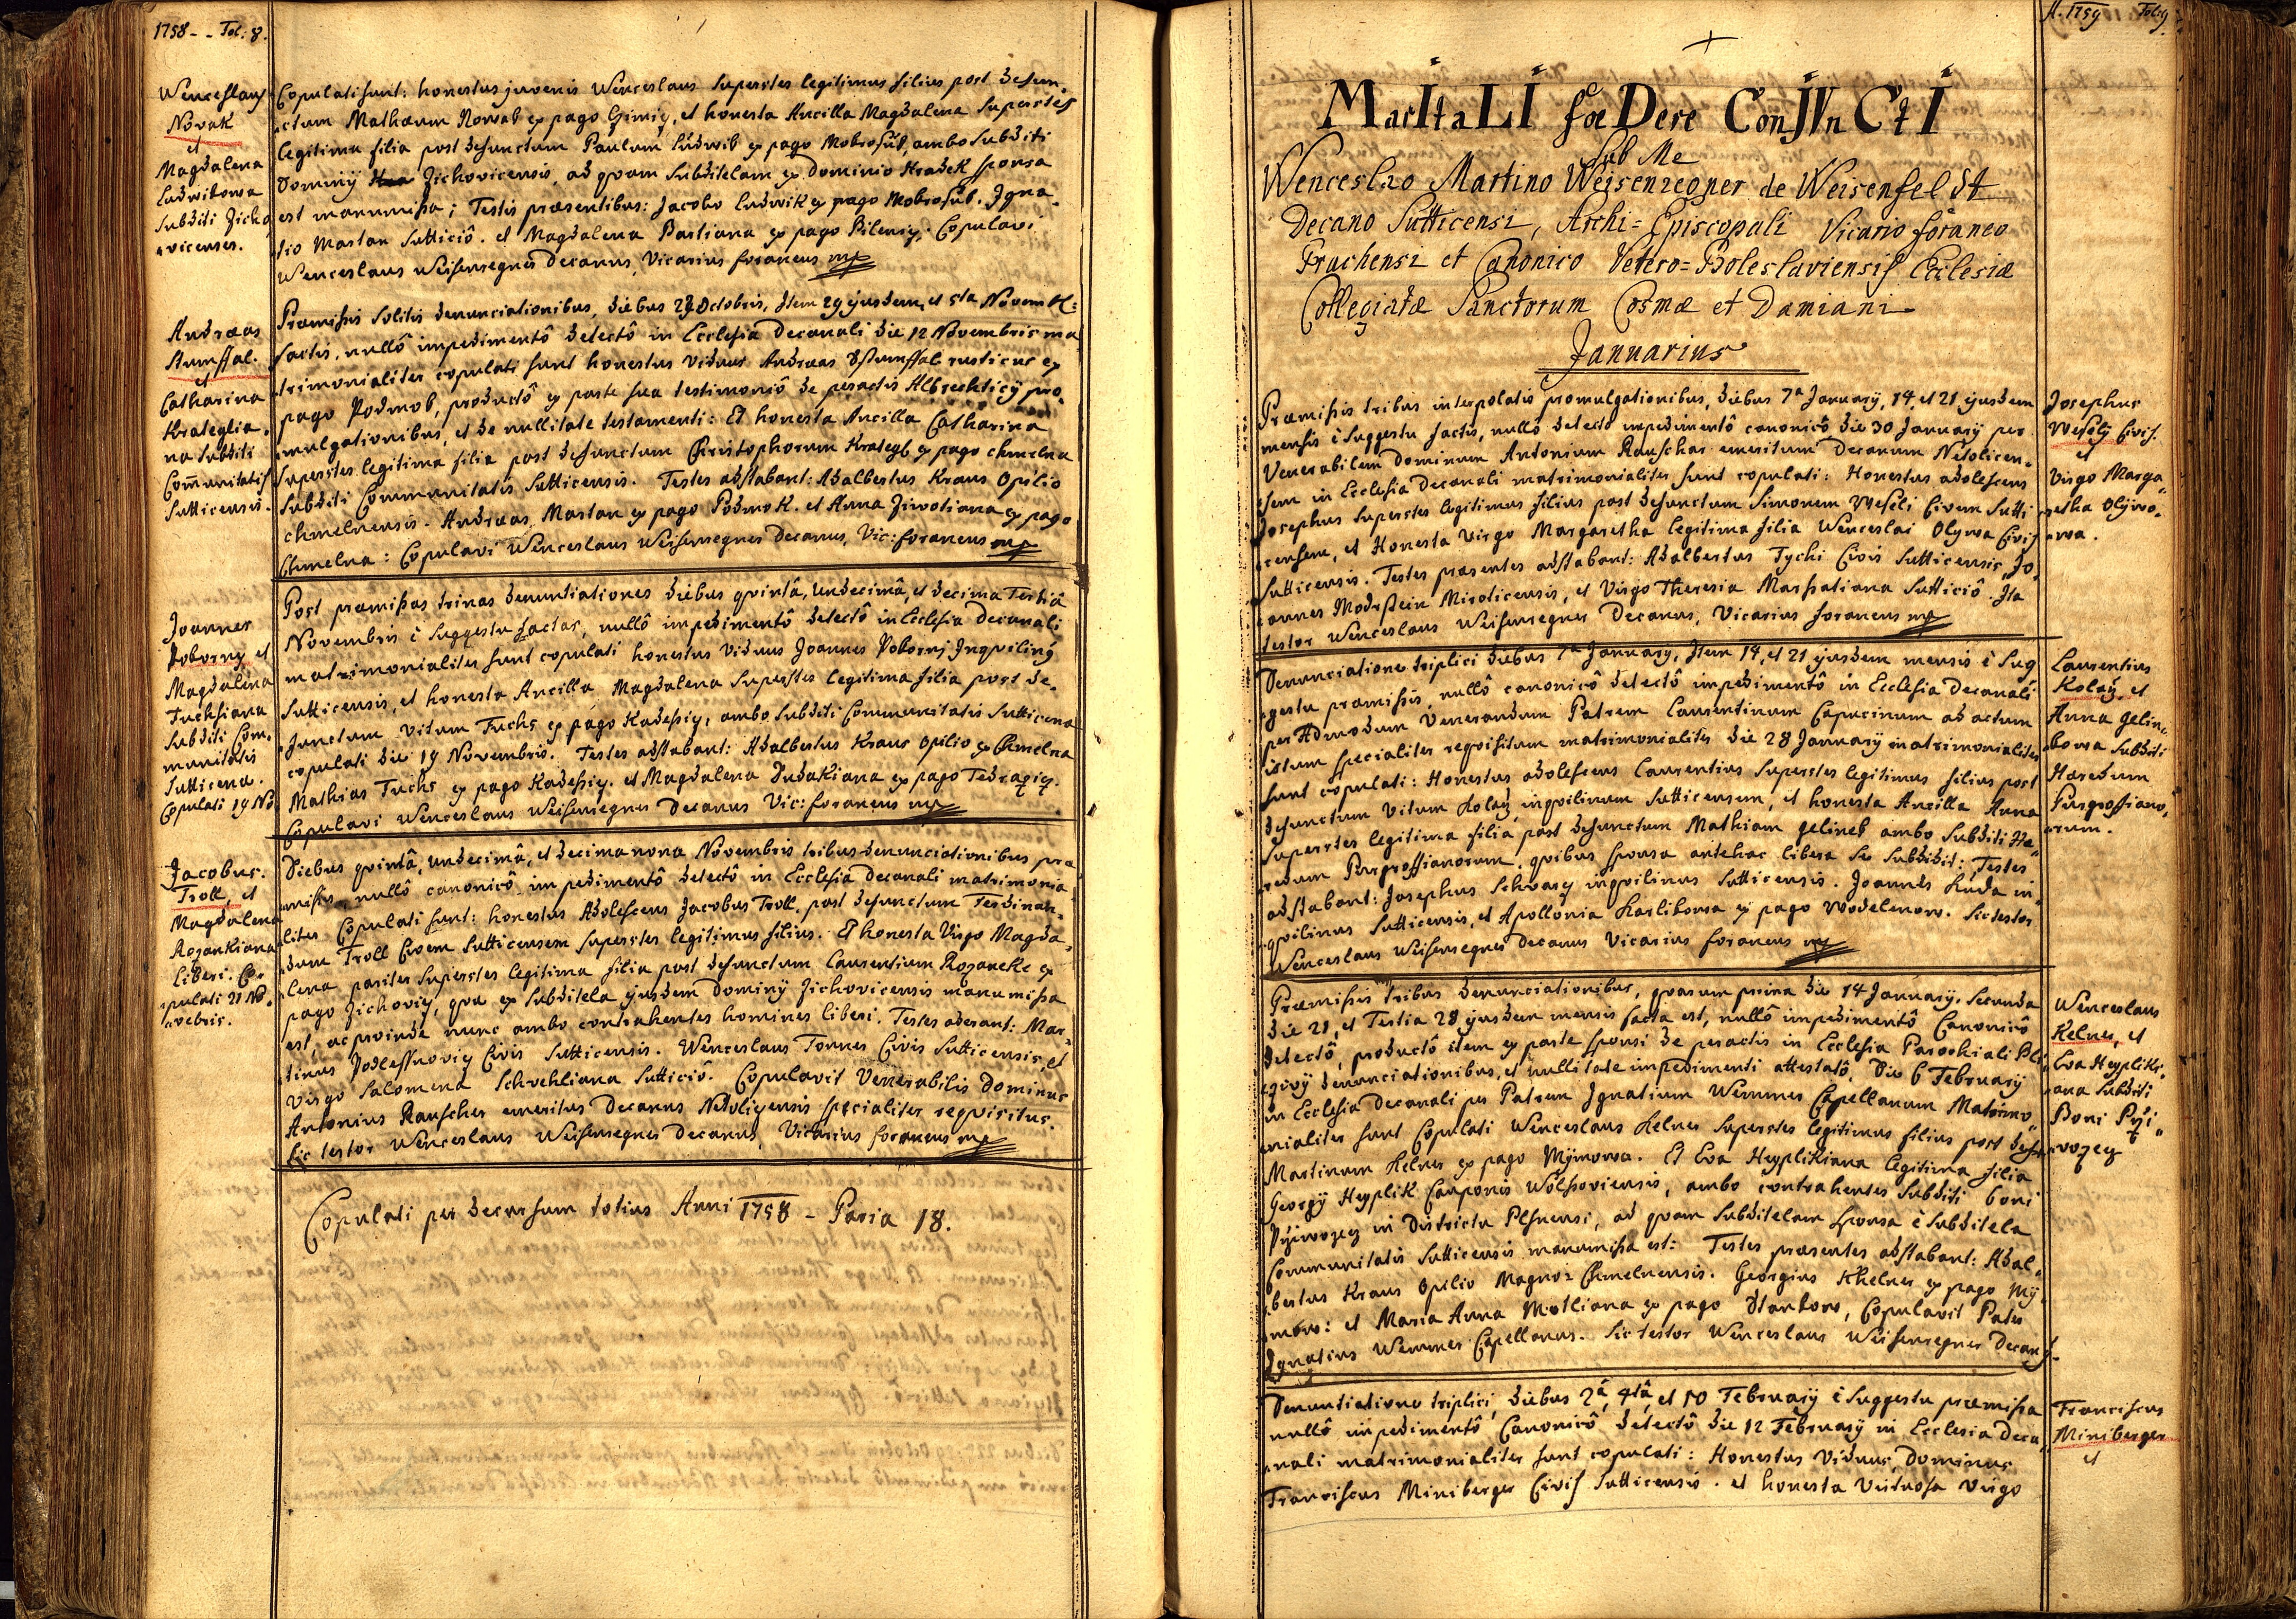 1758 - - Fol: 8.
Wenceslaus
Novak
et
Magdalena
Ludwikowa
Subditi Zicho
vicenses.
Copulati sunt: honestus juvenis Wenceslaus Superstes legitimus filius post defun-
ctum Mathæum Nowak ex pago et honesta Ancilla Magdalena Superstes
legitima filia post defunctum Paulum Ludwik ex pago Mokrosuk, ambo Subditi
Dominij Zichovicensis, ad quam Subditelam ex Dominio Hradek sponsa
est manumissa; Testis præsentibus: Jacobo Ludwik ex pago Mokrosuk. Igna-
tio Martan Sutticiô. et Magdalena Bartiana ex pago Copulavi
Wenceslaus Weisenregner Decanus, Vicarius foraneus mp
Andræas
Stumffal.
et
Catharina
Krateglia-
na Subditi
Com̃unitatis
Sutticensis.
Præmissis Solitis denunciationibus, diebus 28 Octobris, Item 29 ejusdem, et 5ta Novemb:
factis, nullô impedimentô detectô in Ecclesia Decanali die 12 Novembris ma
trimonialiter copulati sunt honestus Viduus Andræas Sstumffal rusticus ex
pago Podmok, productô ex parte sua testimoniô de peractis Albrechticij pro-
mulgationibus, et de nullitate testamenti: Et honesta Ancilla Catharina
Superstes legitima filia post defunctum Christophorum Krategl ex pago Chmelna
Subditi Communitatis Sutticensis. Testes adstabant: Adalbertus Kraus Opilio
Chmelnensis. Andræas Martan ex pago Podmok. et Anna Ziwotiana ex pago
Chmelna: Copulavi Wenceslaus Weisenregner Decanus, Vic: foraneus mp
Joannes
Pokorny et
Magdalena
Fuchsiana
Subditi Com-
munitatis
Sutticena.
Copulati 19 No
Post præmissas trinas denuntiationes diebus quintâ, undecimâ, et decima Tertiâ
Novembris è Suggestu factas, nullô impedimentô detectô in Ecclesia Decanali
matrimonialiter sunt copulati honestus viduus Joannes Pokorni Inquilinus
Sutticensis, et honesta Ancilla Magdalena Superstes legitima filia post de-
functum Vitum Fuchs ex pago Kadessicz, ambo Subditi Communitatis Sutticena
copulati die 19 Novembris. Testes adstabant: Adalbertus Kraus Opilio ex Chmelna
Mathias Fuchs ex pago Kadessicz. et Magdalena Dudakiana ex pago Tedražicz.
Copulavi Wenceslaus Weisenregner Decanus Vic: foraneus mp
Jacobus.
Troll, et
Magdalena
Rozankiana
Liberi. Co-
pulati 21 No-
vebris.
Diebus quintâ, undecimâ, et decima nona Novembris tribus denunciationibus præ
missis, nullô canonicô impedimentô detectô in Ecclesia Decanali matrimonia
liter Copulati sunt: honestus Adolescens Jacobus Troll, post defunctum Ferdinan-
dum Troll Civem Sutticensem Superstes legitimus filius. Et honesta Virgo Magda-
lena pariter Superstes legitima filia post defunctum Laurentium Rozanek ex
pago Zichovicz, qua ex Subditela ejusdem Dominij Zichovicensis manumissa
est, ac proinde nunc ambo contrahentes homines liberi. Testes aderant: Mar-
tinus Podlessnovicz Civis Sutticensis. Wenceslaus Tonner Civis Sutticensis, et
Virgo Salomena Schrehliana Sutticiô. Copulavit Venerabilis Dominus
Antonius Rauscher emeritus Decanus Netolizensis specialiter requisitus.
Sic testor Wenceslaus Weisenregner Decanus, Vicarius foraneus mp
Copulati per decursum totius Anni 1758 - Paria 18.
A. 1759 Fol: 9
MarItaLI foeDere ConJVnCtI
Sub Me
Wenceslao Martino Weisenregner de Weisenfeldt
Decano Sutticensi, Archi=Episcopali Vicario foraneo
Prachensi et Canonico Vetero=Boleslaviensis Ecclesiæ
Collegiatæ Sanctorum Cosmæ et Damiani
Januarius
Præmissis tribus interpolatis promulgationibus, diebus 7a January, 14, et 21 ejusdem
mensis è Suggestu factis, nullô detectô impedimentô canonicô die 30 January per
Venerabilem Dominum Antonium Rauscher emeritum Decanum Netolicen-
sem in Ecclesia Decanali matrimonialiter sunt copulati: Honestus adolescens
Josephus Superstes legitimus filius post defunctum Simonem Weseli Civem Sutti
censem, et Honesta Virgo Margaretha legitima filia Wenceslai Olywa Civis
Sutticensis. Testes præsentes adstabant: Adalbertus Tychi Civis Sutticensis, Jo-
annes Modrstein Miroticensis, et Virgo Theresia Marssatiana Sutticiô. Ita
testor Wenceslaus Weisenregner Decanus, Vicarius foraneus mp
Josephus
Weselij Civis.
et
Virgo Marga-
retha Olijwo-
wa.
Denunciatione triplici diebus 7a January, Item 14, et 21 ejusdem mensis è Sug
gestu præmissis, nullô canonicô detectô impedimentô in Ecclesia Decanali
per Admodum Venerandum Patrem Laurentinum Capucinum ad actum
istum specialiter requisitum matrimonialiter die 28 January matrimonialiter
sunt copulati: Honestus adolescens Laurentius Superstes legitimus filius post
defunctum Vitum Kolaÿ inquilinum Sutticensem, et honesta Ancilla Anna
Superstes legitima filia post defunctum Mathiam Gelinek ambo Subditi Hæ-
redum Purgrossianorum, quibus sponsa antehac libera se Subdidit; Testes
adstabant: Josephus Schvarz inquilinus Sutticensis. Joannes Kuda in-
quilinus Sutticensis, et Apollonia Karlikowa ex pago Wodelenow. Sic testor
Wenceslaus Weisenregner Decanus Vicarius foraneus mp
Laurentius
Kolaÿ et
Anna Gelin-
kowa Subditi
Hæredum
Purgrossiano-
rum.
Præmissis tribus denunciationibus, quarum prima die 14 January, Secunda
die 21, et Tertia 28 ejusdem mensis facta est, nullô impedimentô Canonicô
detectô, productô item ex parte sponsi de peractis in Ecclesia Parochiali
denunciationibus, et nullitate impedimenti attestatô, Die 6 February
in Ecclesia Decanali per Patrem Ignatium Wemmer Capellanum Matrimo-
nialiter sunt Copulati Wenceslaus Kelner Superstes legitimus filius post
Martinum Kelner ex pago Mijmowa. Et Eva Heyplikiana legitima filia
Georgij Heyplik Cauponis Wolssoviensis, ambo contrahentes Subditi boni
in Districtu Plsnensi, ad quam Subditelam Sponsa è Subditela
Communitatis Sutticensis manumissa est: Testes præsentes adstabant: Adal-
bertus Kraus Opilio Magno: Chmelnensis. Georgius Khelner ex pago Mij-
mow: et Maria Anna Motliana ex pago Stankow, Copulavit Pater
Ignatius Wemmer Capellanus. Sic testor Wenceslaus Weisenregner Decanus.
Wenceslaus
Kelner, et
Eva Heyplik-
ana Subditi
Boni
Denuntiatione triplici, diebus 2â, 4tâ, et 10 February è Suggestu præmissa
nullô impedimentô Canonicô detectô die 12 February in Ecclesia Deca-
nali matrimonialiter sunt copulati: Honestus Viduus, Dominus
Franciscus Miniberger Civis Sutticensis. et honesta Virtuosa Virgo
Franciscus
Miniberger
et